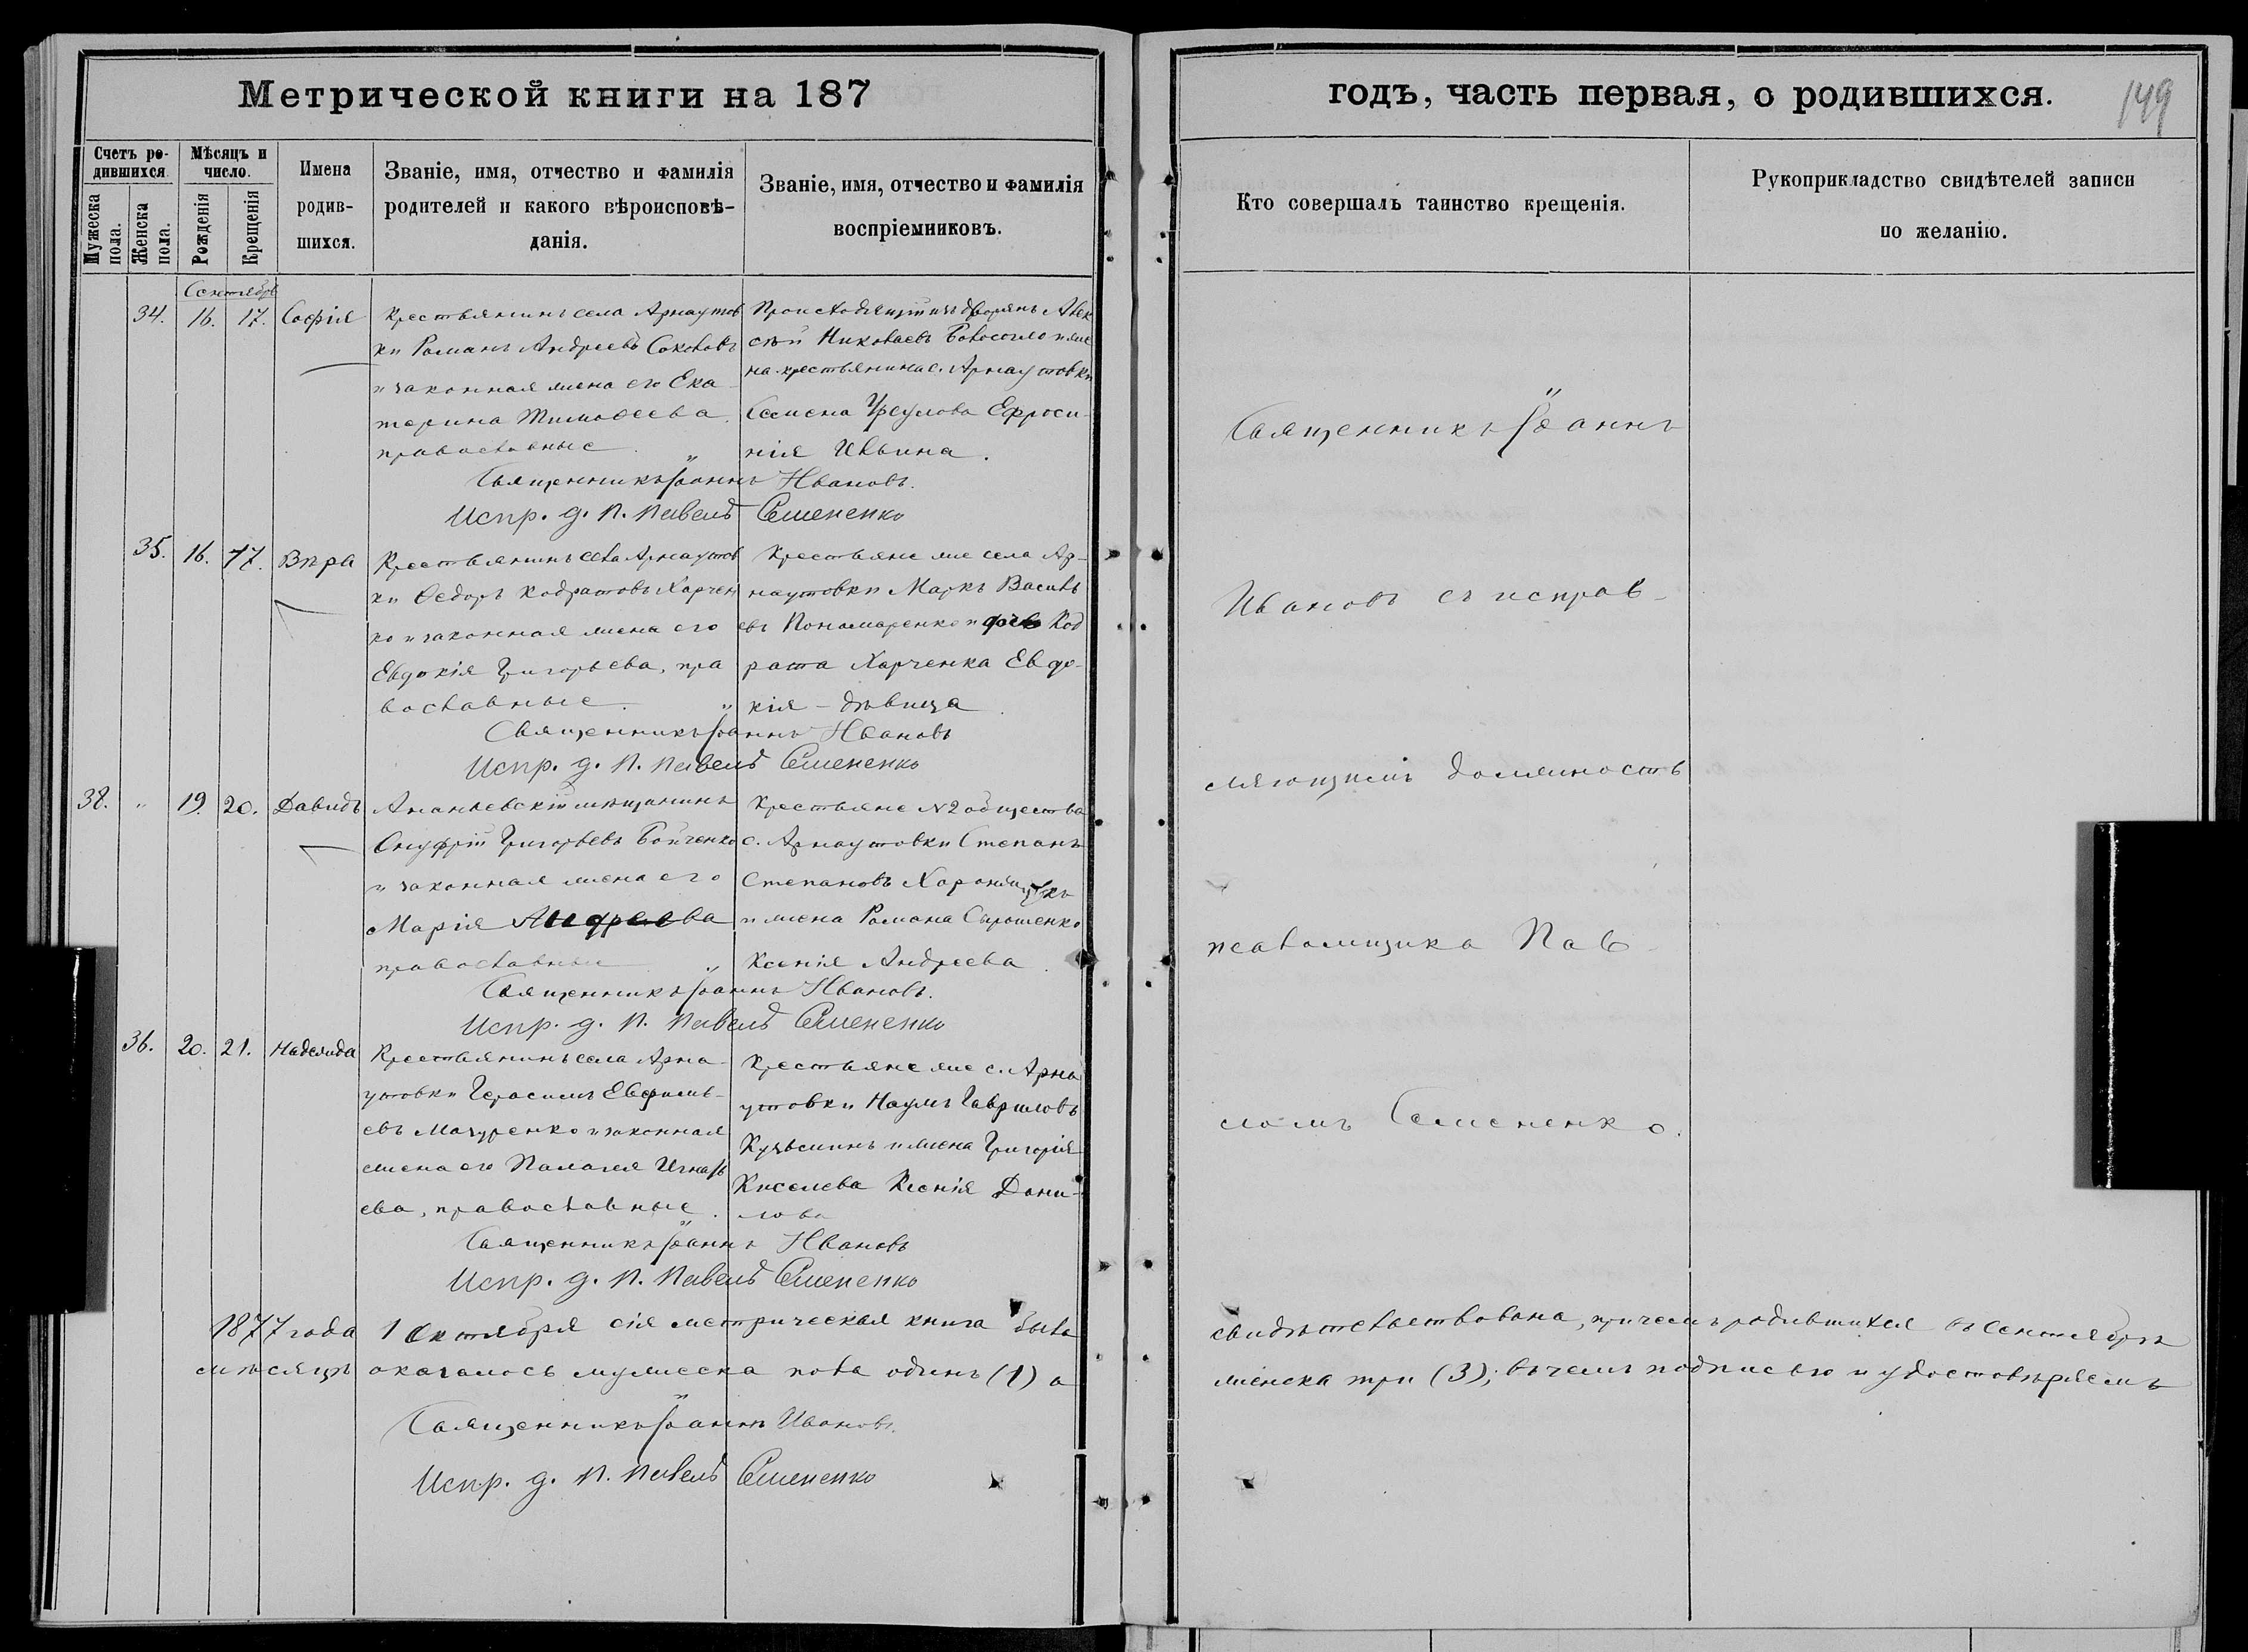 Метрической книги на 187
годъ, часть первая, о родившихся.
149
Счетъ ро-
дившихся.
Мужеска пола.
Женска пола.
Мѣсяцъ и
число.
Рожденія
Крещенія
Имена
родив-
шихся.
Званіе, имя, отчество и фамилія
родителей и какого вѣроисповѣ-
данія.
Званіе, имя, отчество и фамилія
воспріемниковъ.
Кто совершалъ таинство крещенія.
Рукоприкладство свидѣтелей записи
по желанію.
Сентябрь
34. 16. 17. Софія
Крестьянинъ села Арнаутов
ки Романъ Андреевъ Соколовъ
и законная жена его Ека-
терина Тимоѳеева.
православные.
Происходящій изъ дворянъ Алек
сѣй Николаевъ и же
на крестьянина с. Арнаутовки
Семена Ефроси-
нія Ильина.
Священникъ Іоаннъ Ивановъ.
Испр. д. П. Павелъ Семененко
35. 16. 17. Вѣра
Крестьянинъ села Арнаутов
ки Ѳедоръ Кодратовъ Харчен
ко и законная жена его
Евдокія Григорьева, пра
вославные.
Крестьяне же села Ар-
наутовки Маркъ Василь
евъ Пономаренко и Код
рата Харченка Евдо-
кія - дѣвица.
Священникъ Іоаннъ Ивановъ
Испр. д. П. Павелъ Семененко
38. " 19. 20. Давидъ
Ананьевскій мѣщанинъ
Онуфрій Григорьевъ Бойченко
и законная жена его
Марія Андреева
православные
Крестьяне №2 общества
с. Арнаутовки Степанъ
Степановъ
и жена Романа Сырошенко
Ксенія Андреева.
Священникъ Іоаннъ Ивановъ.
Испр. д. П. Павелъ Семененко
36. 20. 21. Надежда
Крестьянинъ села Арна-
утовки Герасимъ Евфимь-
евъ Мазуренко и законная
жена его Палагія Игнать
ева, православные.
Крестьяне же с. Арна
утовки Наумъ Гавриловъ
Кузьминъ и жена Григорія
Киселева Ксенія Дани-
лова
Священникъ Іоаннъ Ивановъ
Испр. д. П. Павелъ Семененко
Священникъ Іоаннъ
Ивановъ съ исправ-
ляющимъ должность
псаломщика Пав-
ломъ Семененко.
1877 года 1 Октября сія метрическая книга была свидѣтельствована, причемъ родившихся въ Сентябрѣ
мѣсяцѣ оказалось мужеска пола одинъ (1) а женска три (3); въ чемъ подписью и удостовѣряемъ
Священникъ Іоаннъ Ивановъ.
Испр. д. П. Павелъ Семененко